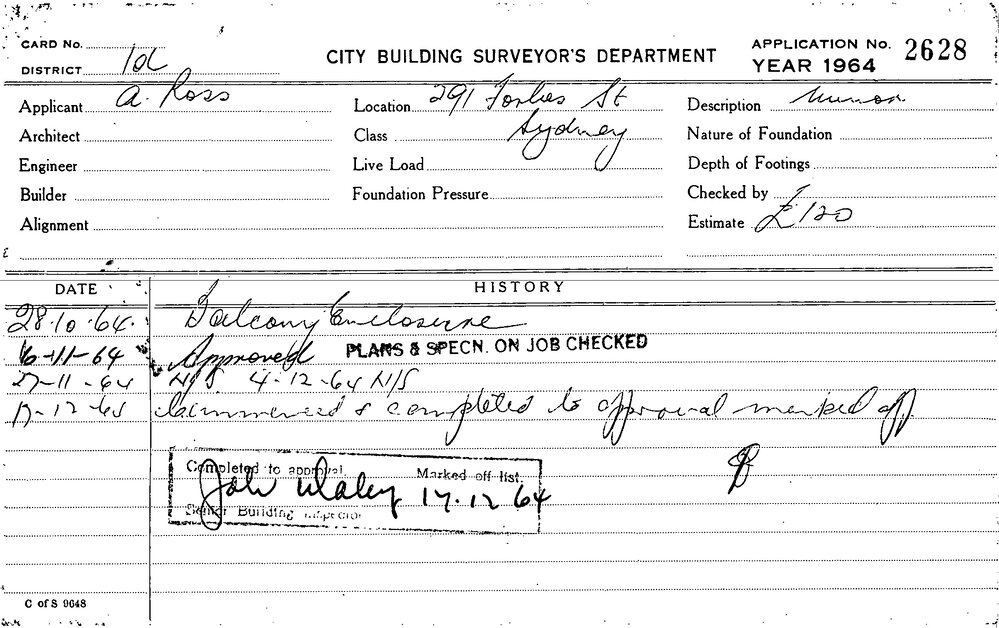 CARD No.
DISTRICT
CITY BUILDING SURVEYOR'S DEPARTMENT
APPLICATION No. 2628
YEAR 1964
Applicant A. Ross
Location 291 Forbes St
Description Minor
Architect
Class Sydney
Nature of Foundation
Engineer
Live Load
Depth of Footings
Builder
Foundation Pressure
Checked by
Alignment
Estimate £120
DATE
HISTORY
28.10.64. Balcony Enclosure
6-11-64 Approved PLANS & SPECN. ON JOB CHECKED
27-11-64 N/S 4-12-64 N/S
17-12-64 Commenced & completed to approval marked off.
Completed to approval. Marked off list.
17.12 64
Senior Building Inspector
C of S 9648